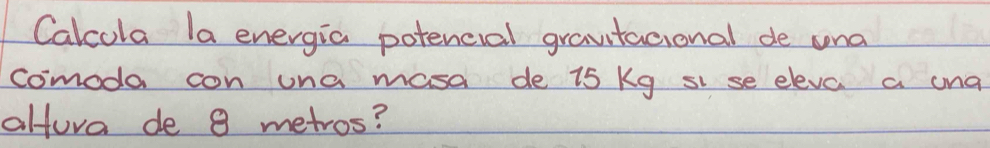 Calcula la energía potencial gravitacional de una
cómoda con una masa de 75 Kg si se eleva a una
altura de 8 metros?